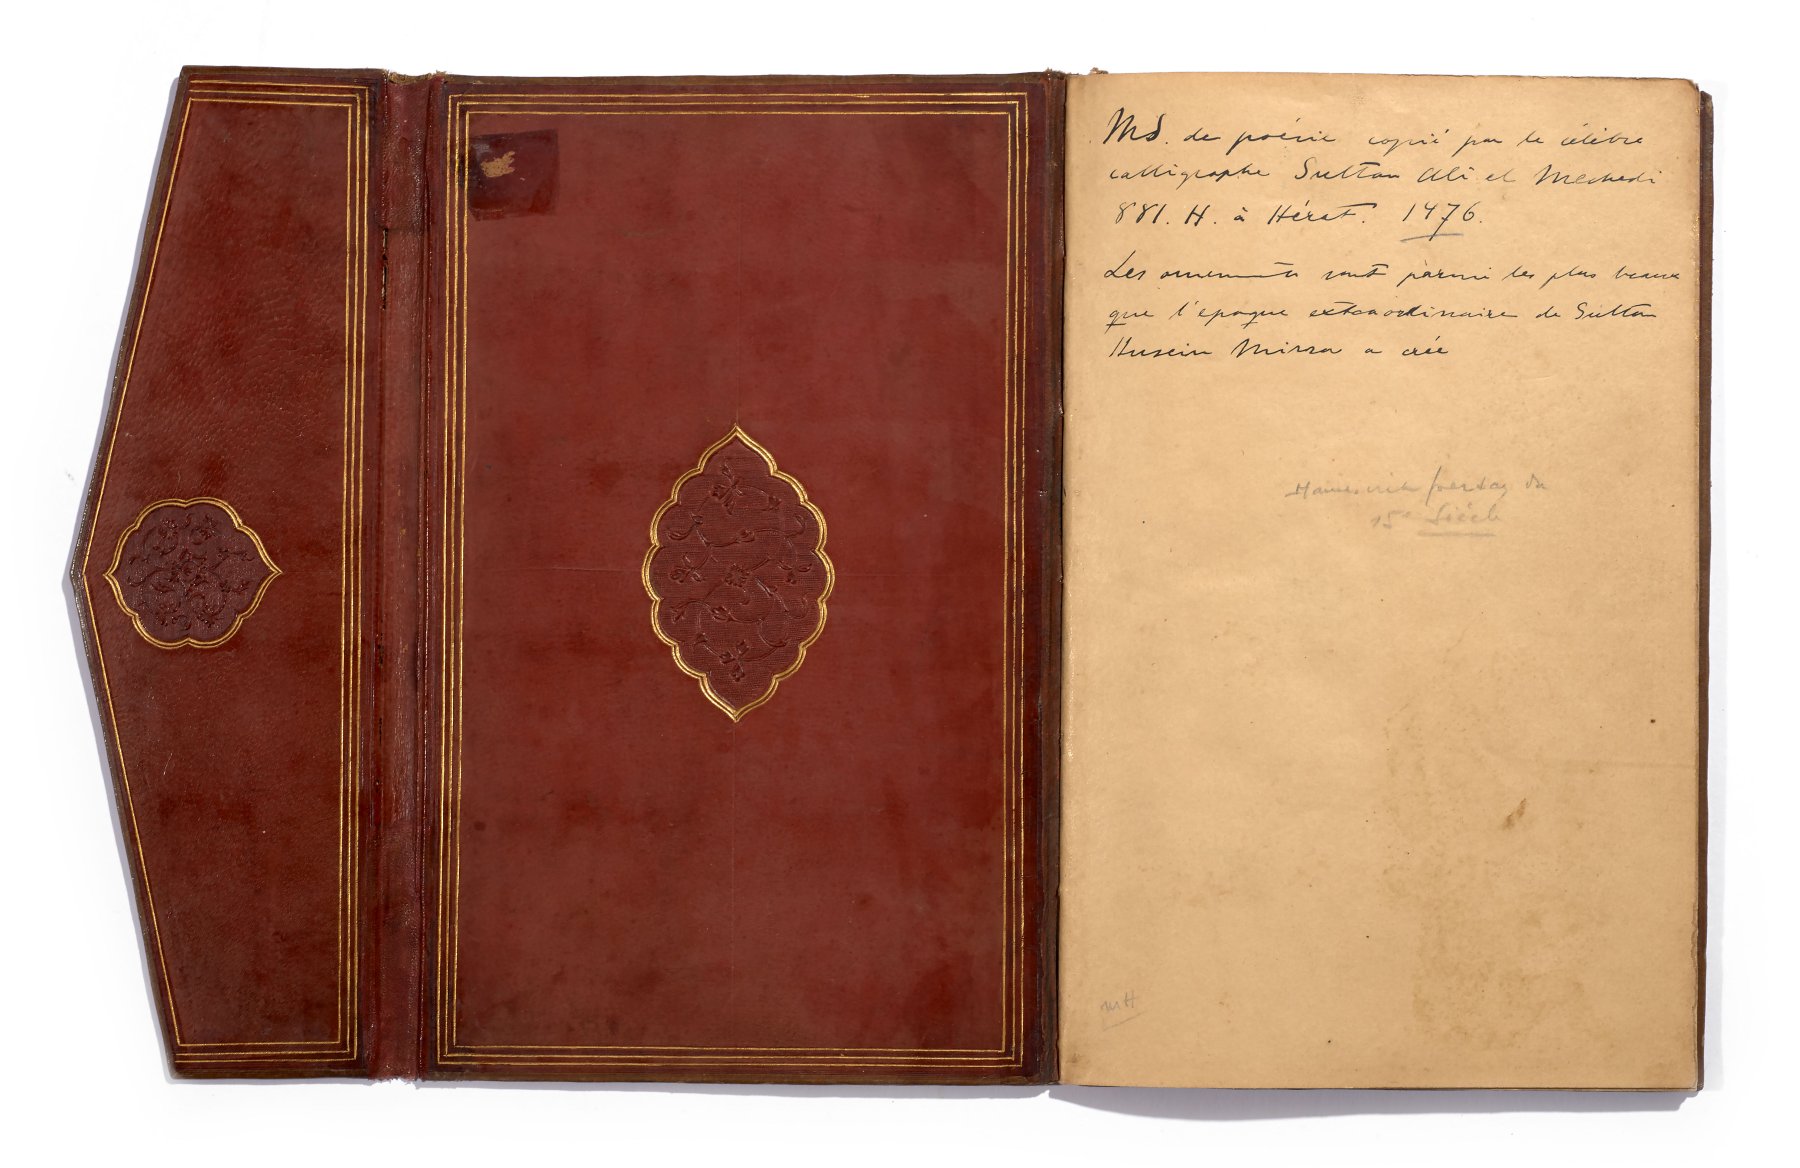 MS. de poésie copié par le célèbre
calligraphe Sultan Ali el Mechedi
881. H. à Hérat. 1476.
Les ornements sont parmi les plus beaux
que l'epoque extraordinaire de Sultan
Husein Mirza a crée
Manuscrit persan du
15e Siècle
MH